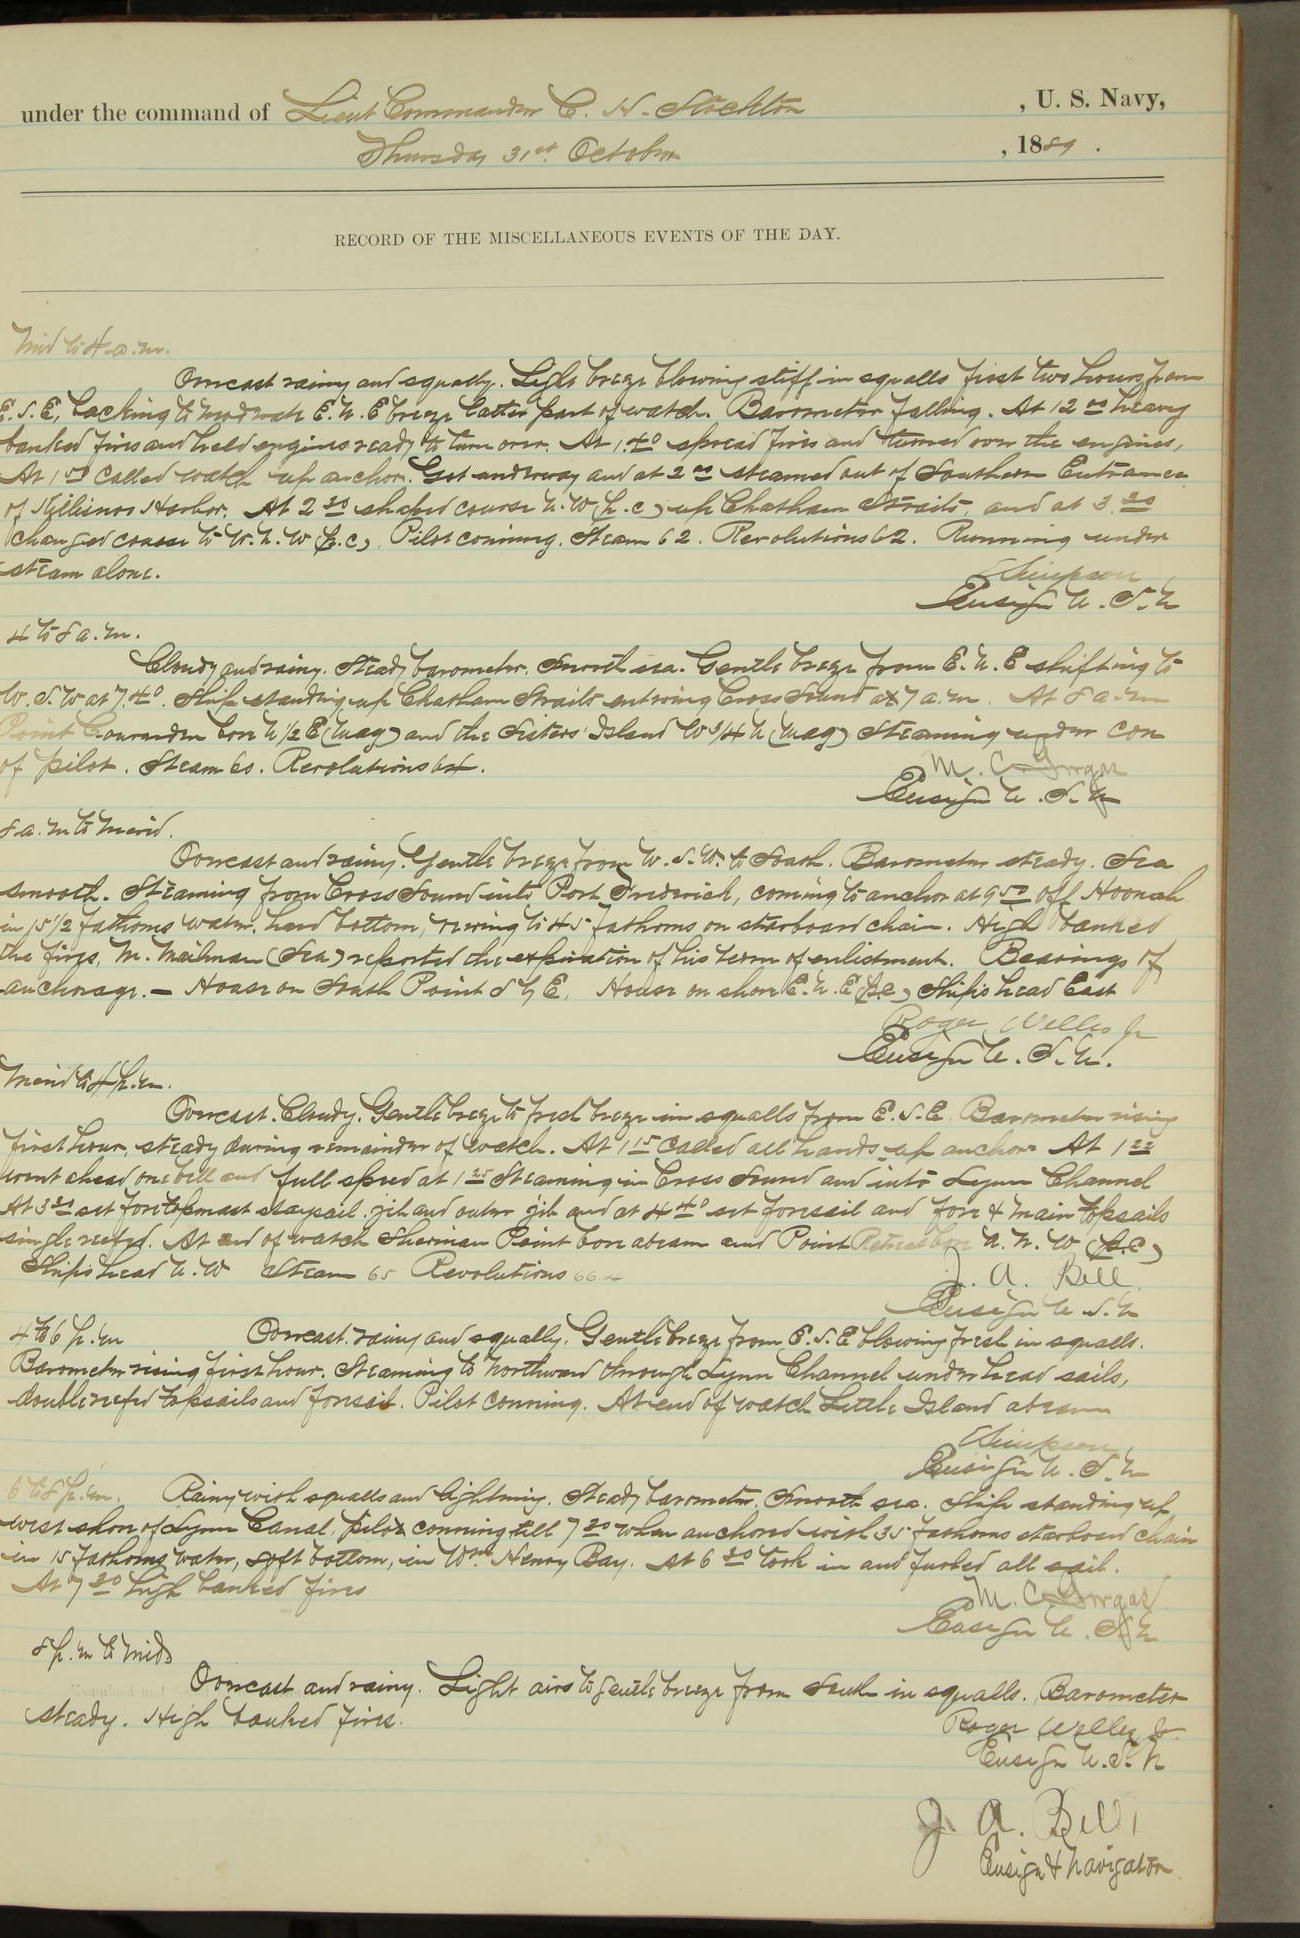 under the command of Lieut Commander C. H. Stockton , U. S. Navy,
Thursday 31st October , 1889.
RECORD OF THE MISCELLANEOUS EVENTS OF THE DAY.
Mid to 4 a.m.
Overcast rainy and squally. Light breeze blowing stiff in squalls first two hours from
E.S.E. backing to moderate E.N.E breeze latter part of watch. Barometer falling. At 12 00 heavy
banked fires and held engines ready to turn over. At 1.40 spread fires and turned over the engines,
At 1 50 called watch up anchor. Got underway and at 2 00 steamed out of Southern Entrance
of Killisnoo Harbor. At 2 20 shaped course N.W (p.c) up Chatham Straits, and at 3.20
changed course to W.N.W (p.c). Pilot conning. Steam 62. Revolutions 62. Running under
steam alone.
Simpson
Ensign U.S.N
4 to 8 a.m.
Cloudy and rainy. Steady barometer. Smooth sea. Gentle breeze from E.N.E shifting to
W.S.W at 7.40. Ship standing up Chatham Straits entering Cross Sound at 7 a.m. At 8 a.m
Point Couverden bore N 1/2 E (mag) and the Sisters Island W 3/4 N (mag) Steaming under con
of pilot. Steam 60. Revolutions 64.
M. C. Gorgas
Ensign U.S.N
8 a.m to Merid.
Overcast and rainy. Gentle breeze from W.S.W. to South. Barometer steady. Sea
smooth. Steaming from Cross Sound into Port Fredrick, coming to anchor at 9 50 off Hoonah
in 15 1/2 fathoms water, hard bottom, veering to 45 fathoms on starboard chain. High banked
the fires. M. Mailman (Sea) reported the expiration of his term of enlistment. Bearings of
anchorage. — House on South Point S by E, House on shore E.N.E (p.c) Ships head East
Roger Welles Jr
Ensign U.S.N.
Merid to 4 p.m.
Overcast. Cloudy. Gentle breeze to fresh breeze in squalls from E.S.E. Barometer rising
first hour, steady during remainder of watch. At 1 15 called all hands up anchor. At 1 22
went ahead one bell and full speed at 1 25 Steaming in Cross Sound and into Lynn Channel
At 3 30 set foretopmast staysail, jib and outer jib and at 4 40 set foresail and fore & main topsails
single reefed. At end of watch Sherman Point bore abeam and Point Retreat bore N.N.W (p.c)
Ships head N.W Steam 65 Revolutions 66.4
J. A. Bell
Ensign U.S.N
4 to 6 p.m Overcast, rainy and squally. Gentle breeze from E.S.E blowing fresh in squalls.
Barometer rising first hour. Steaming to Northward through Lynn Channel under head sails,
double reefed topsails and foresail. Pilot conning. At end of watch Little Island abeam
Simpson
Ensign U.S.N
6 to 8 p.m. Rainy with squalls and lightning. Steady barometer. Smooth sea. Ship standing up
west shore of Lynn Canal, pilot conning till 7 20 when anchored with 35 fathoms starboard chain
in 15 fathoms water, soft bottom, in Wm Henry Bay. At 6 30 took in and furled all sail.
At 7 30 high banked fires
M. C. Gorgas
Ensign U.S.N
8 p.m to Mids
Overcast and rainy. Light airs to gentle breeze from South in squalls. Barometer
steady. High banked fires.
Roger Welles Jr.
Ensign U.S.N
J. A. Bell,
Ensign & Navigator